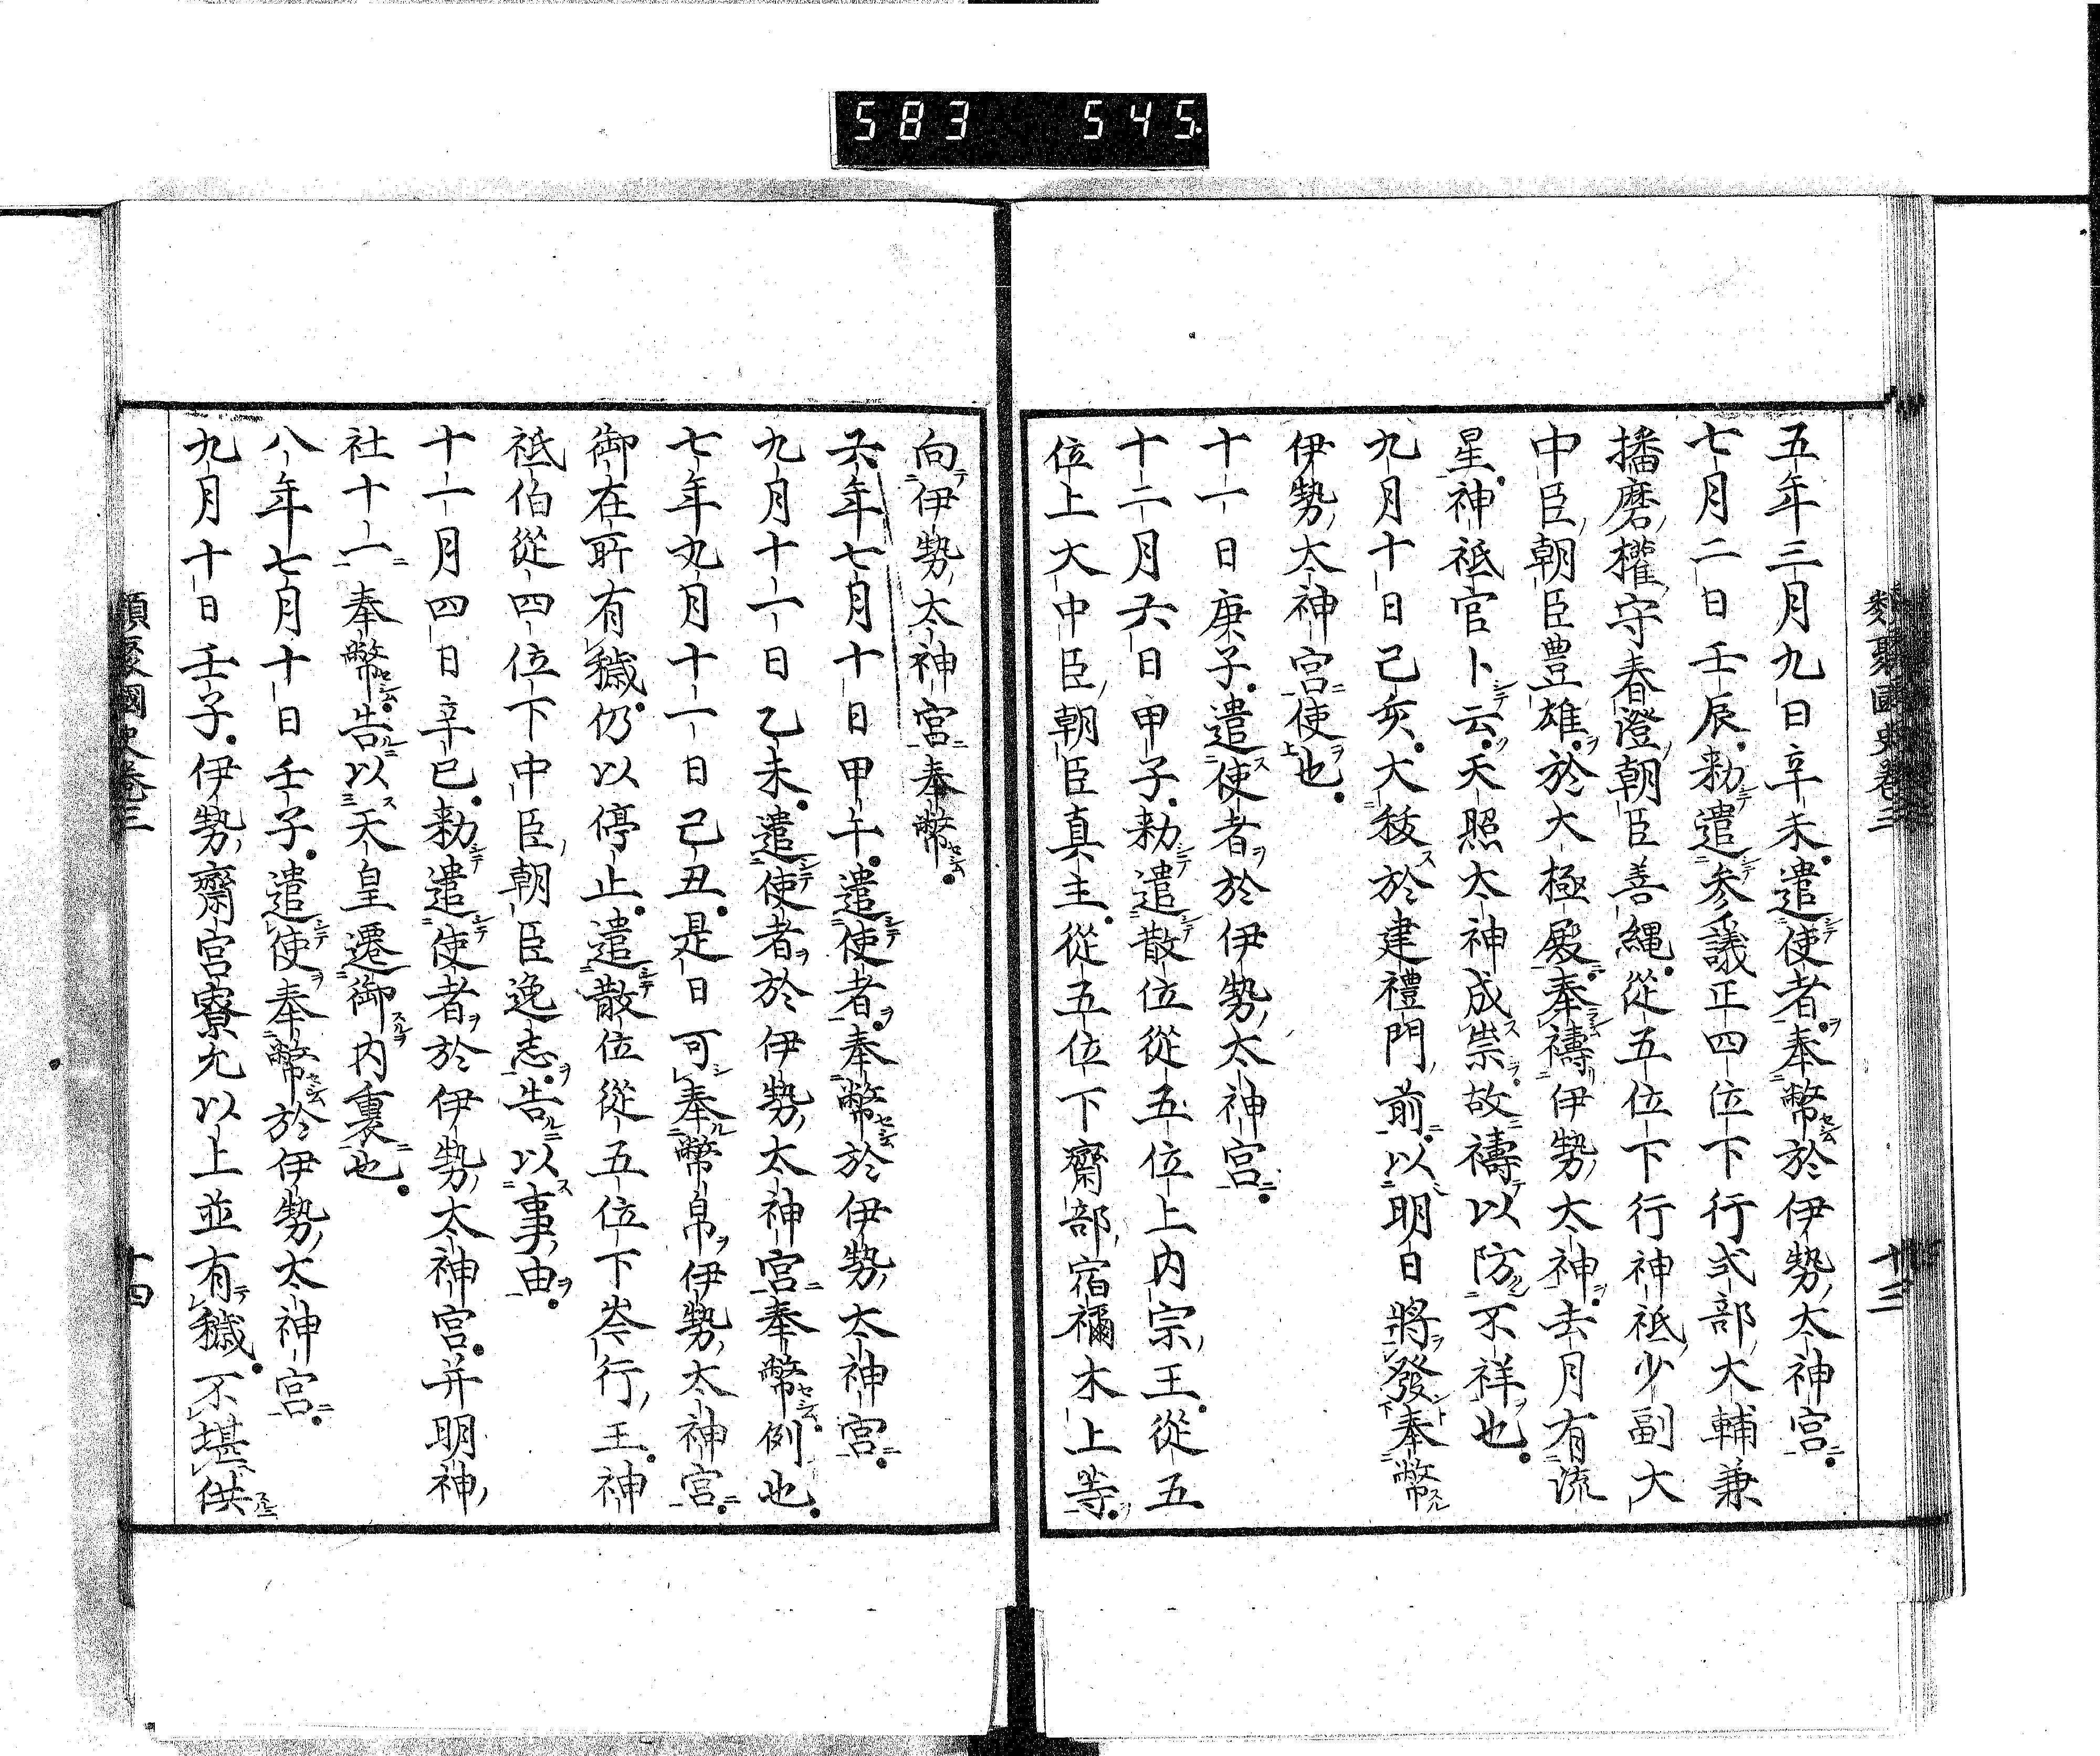 583 545
類聚國史卷三 十三
五年三月九日辛未遣使者奉幣於伊勢太神宮
七月二日壬辰勑遣參議正四位下行式部大輔兼
播磨權守春澄朝臣善繩從五位下行神祇少副大
中臣朝臣豊雄於大極殿奉禱伊勢太神去月有流
星神祇官卜云天照太神成祟故禱以防不祥也
九月十日己亥大秡於建禮門前以明日將發奉幣
伊勢太神宮使也
十一日庚子遣使者於伊勢太神宮
十二月六日甲子勑遣散位從五位上内宗王從五
位上大中臣朝臣真主從五位下齋部宿禰木上等
向伊勢太神宮奉幣
六年七月十日甲午遣使者奉幣於伊勢太神宮
九月十一日乙未遣使者於伊勢太神宮奉幣例也
七年九月十一日己丑是日可奉幣帛伊勢太神宮
御在所有穢仍以停止遣散位從五位下岑行王神
祇伯從四位下中臣朝臣逸志告以事由
十一月四日辛巳勑遣使者於伊勢太神宮并明神
社十一奉幣告以天皇遷御内裏也
八年七月十日壬子遣使奉幣於伊勢太神宮
九月十日壬子伊勢齋宮寮允以上並有穢不堪供
類聚國史卷三 十四